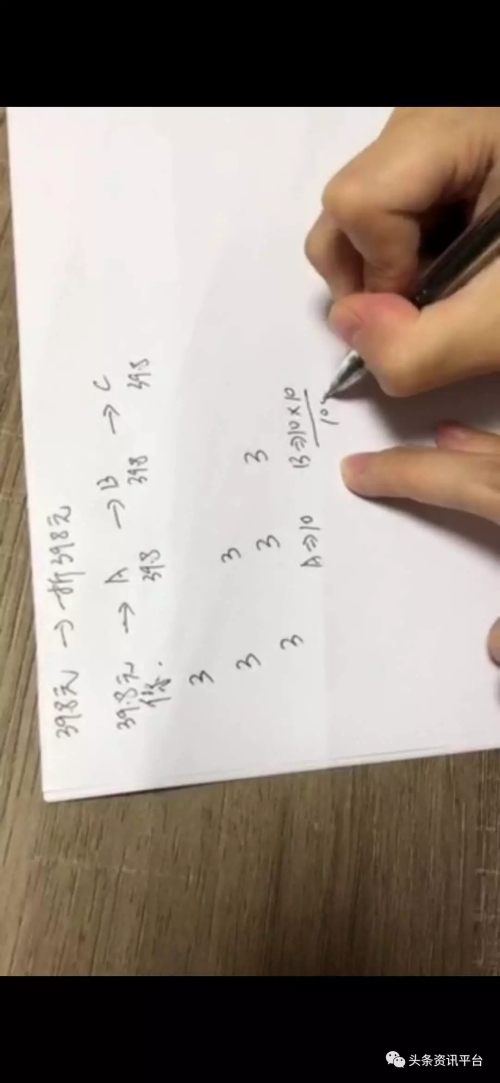 398元 → 一折39.8元
39.8元 → A → B → C
39.8 39.8 39.8
3
3 3
3 3 3
A⇒10 B⇒10×10
10
头条资讯平台